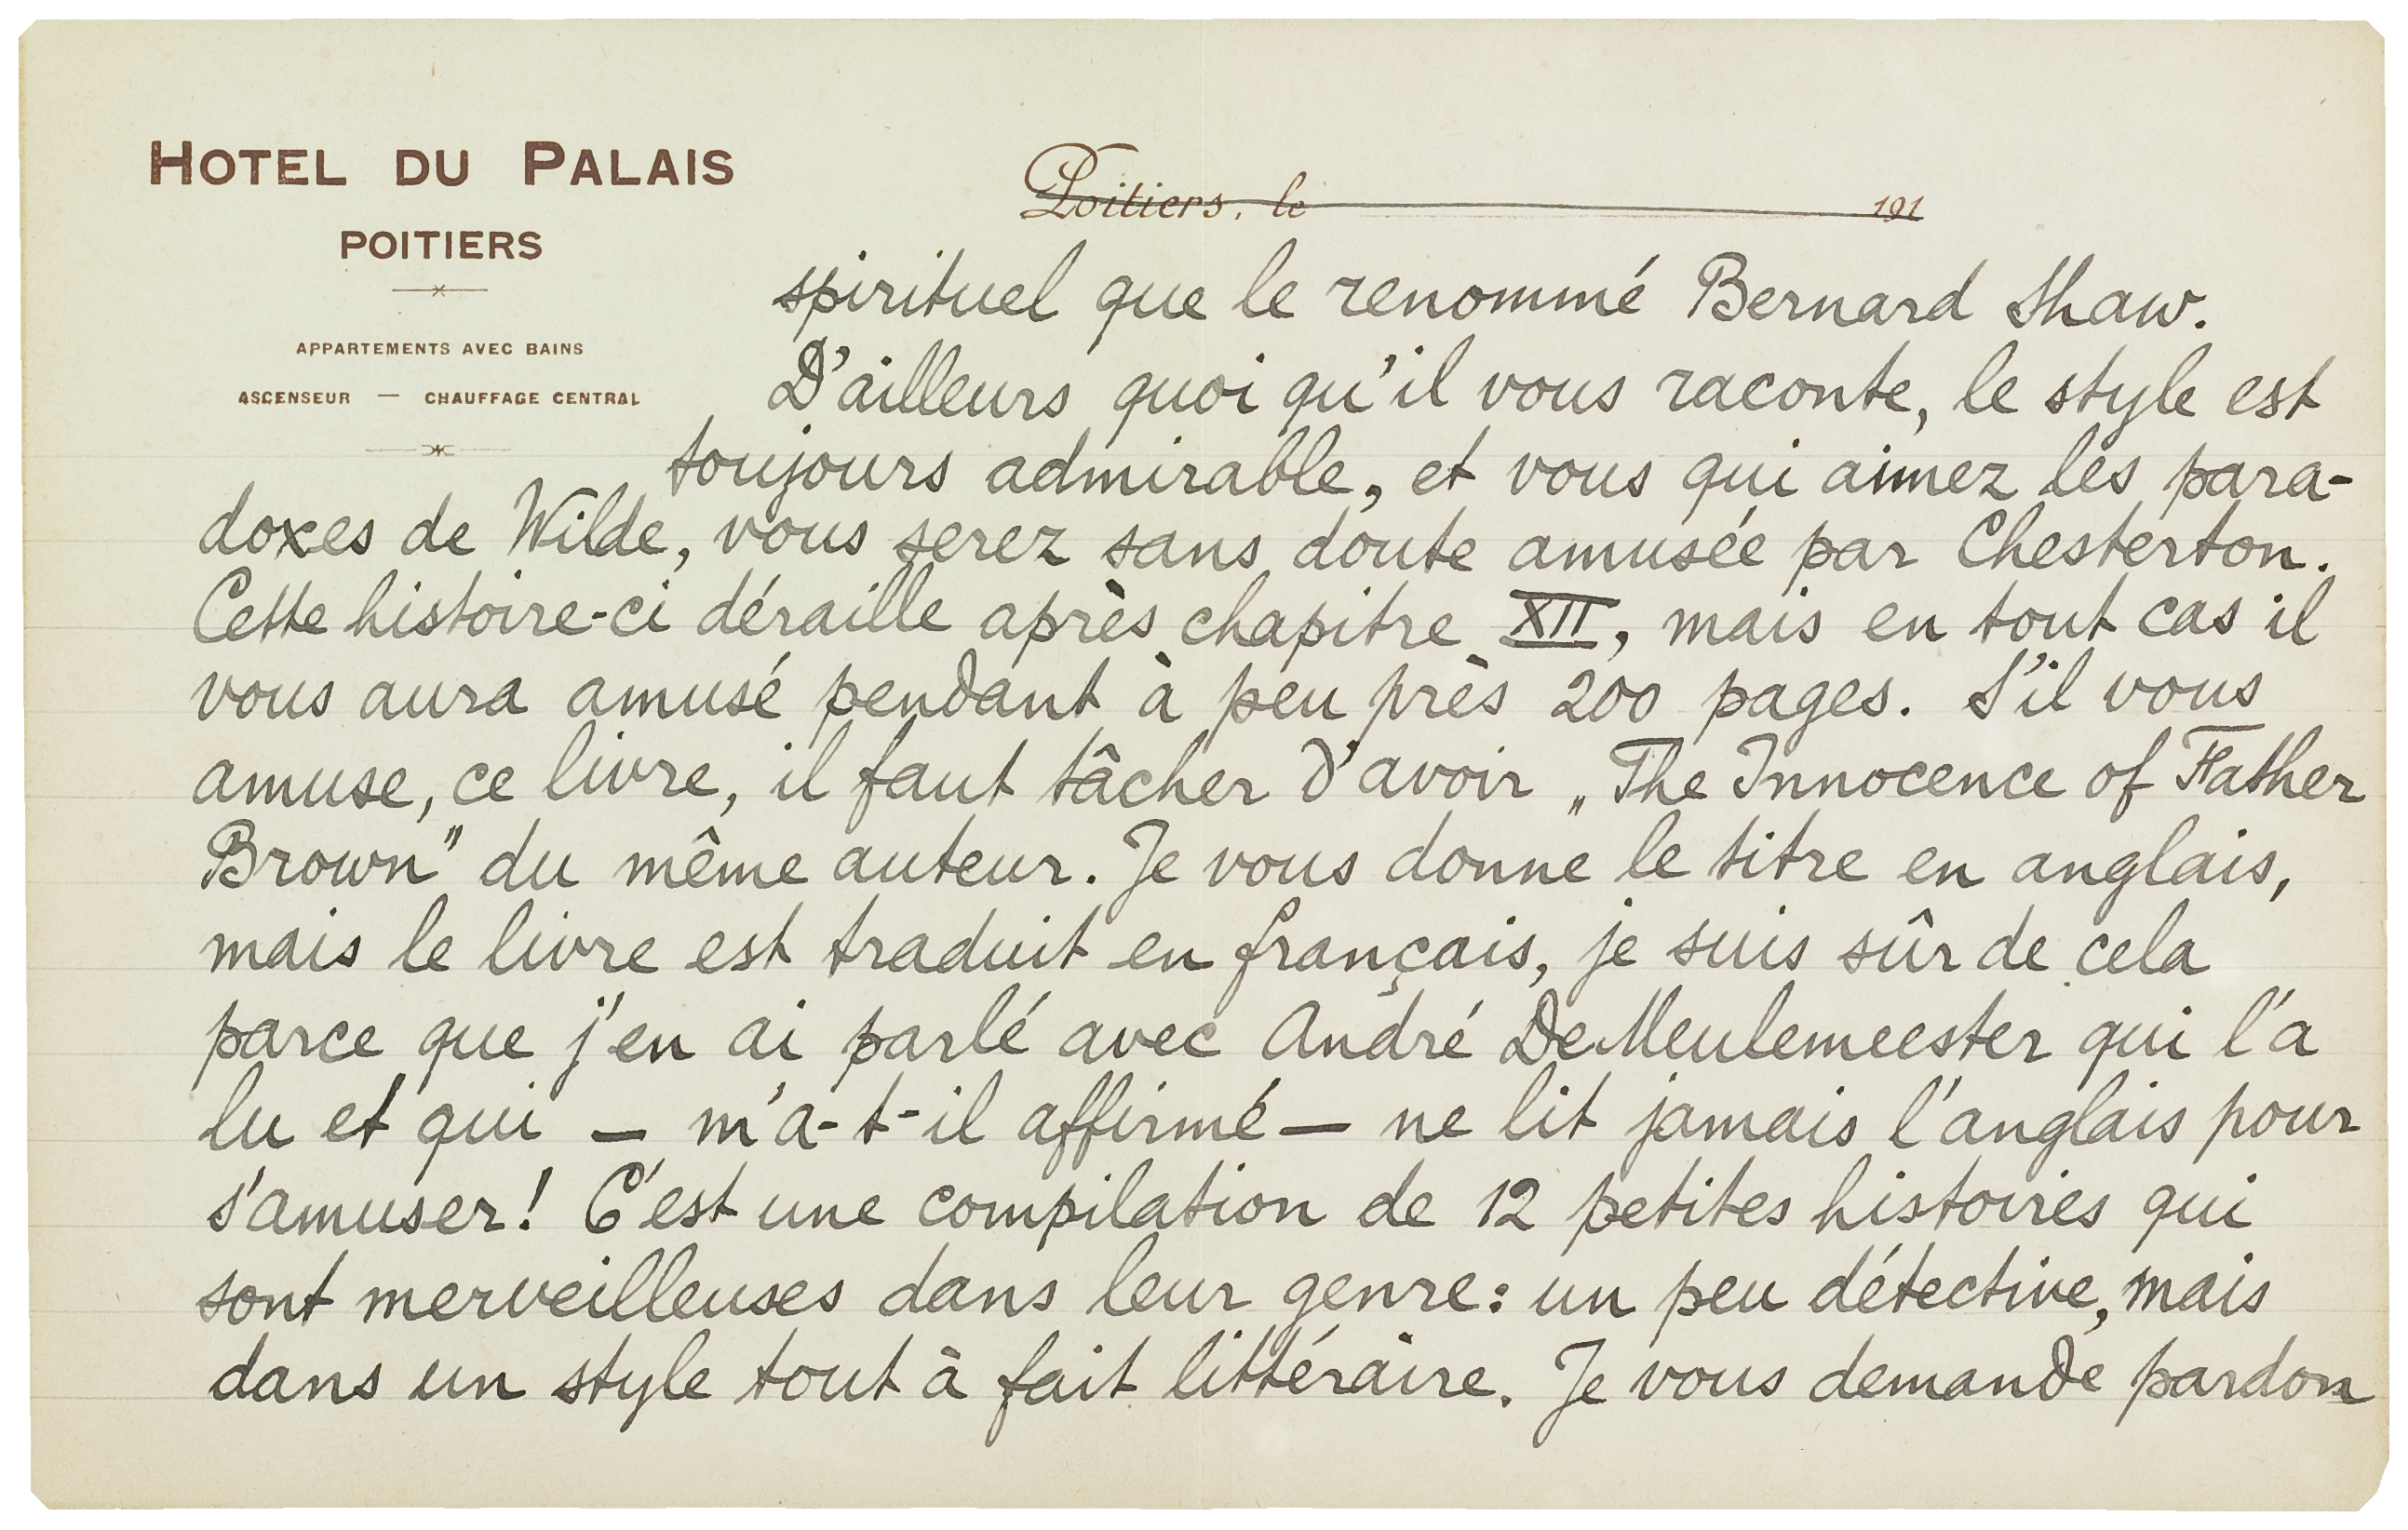 HOTEL DU PALAIS
POITIERS
APPARTEMENTS AVEC BAINS
ASCENSEUR — CHAUFFAGE CENTRAL
Poitiers, le 191
spirituel que le renommé Bernard Shaw.
D'ailleurs quoi qu'il vous raconte, le style est
toujours admirable, et vous qui aimez les para-
doxes de Wilde, vous serez sans doute amusée par Chesterton.
Cette histoire-ci déraille après chapitre XII, mais en tout cas il
vous aura amusé pendant à peu près 200 pages. S'il vous
amuse, ce livre, il faut tâcher d'avoir „The Innocence of Father
Brown" du même auteur. Je vous donne le titre en anglais,
mais le livre est traduit en français, je suis sûr de cela
parce que j'en ai parlé avec André De Meulemeester qui l'a
lu et qui — m'a-t-il affirmé — ne lit jamais l'anglais pour
s'amuser! C'est une compilation de 12 petites histoires qui
sont merveilleuses dans leur genre: un peu détective, mais
dans un style tout à fait littéraire. Je vous demande pardon